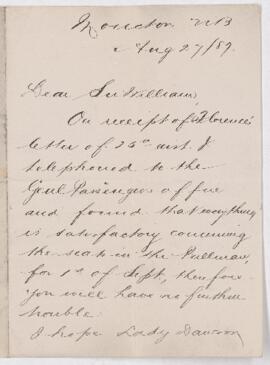 Moncton NB
Aug 27/89.
Dear Sir William,
On receipt of Florence's
letter of 25th inst. I
telephoned to the
Genl Passengers office
and found that everything
is satisfactory concerning
the seats in the Pullman,
for 1st of Sept, therefore
you will have no further
trouble.
I hope Lady Dawson